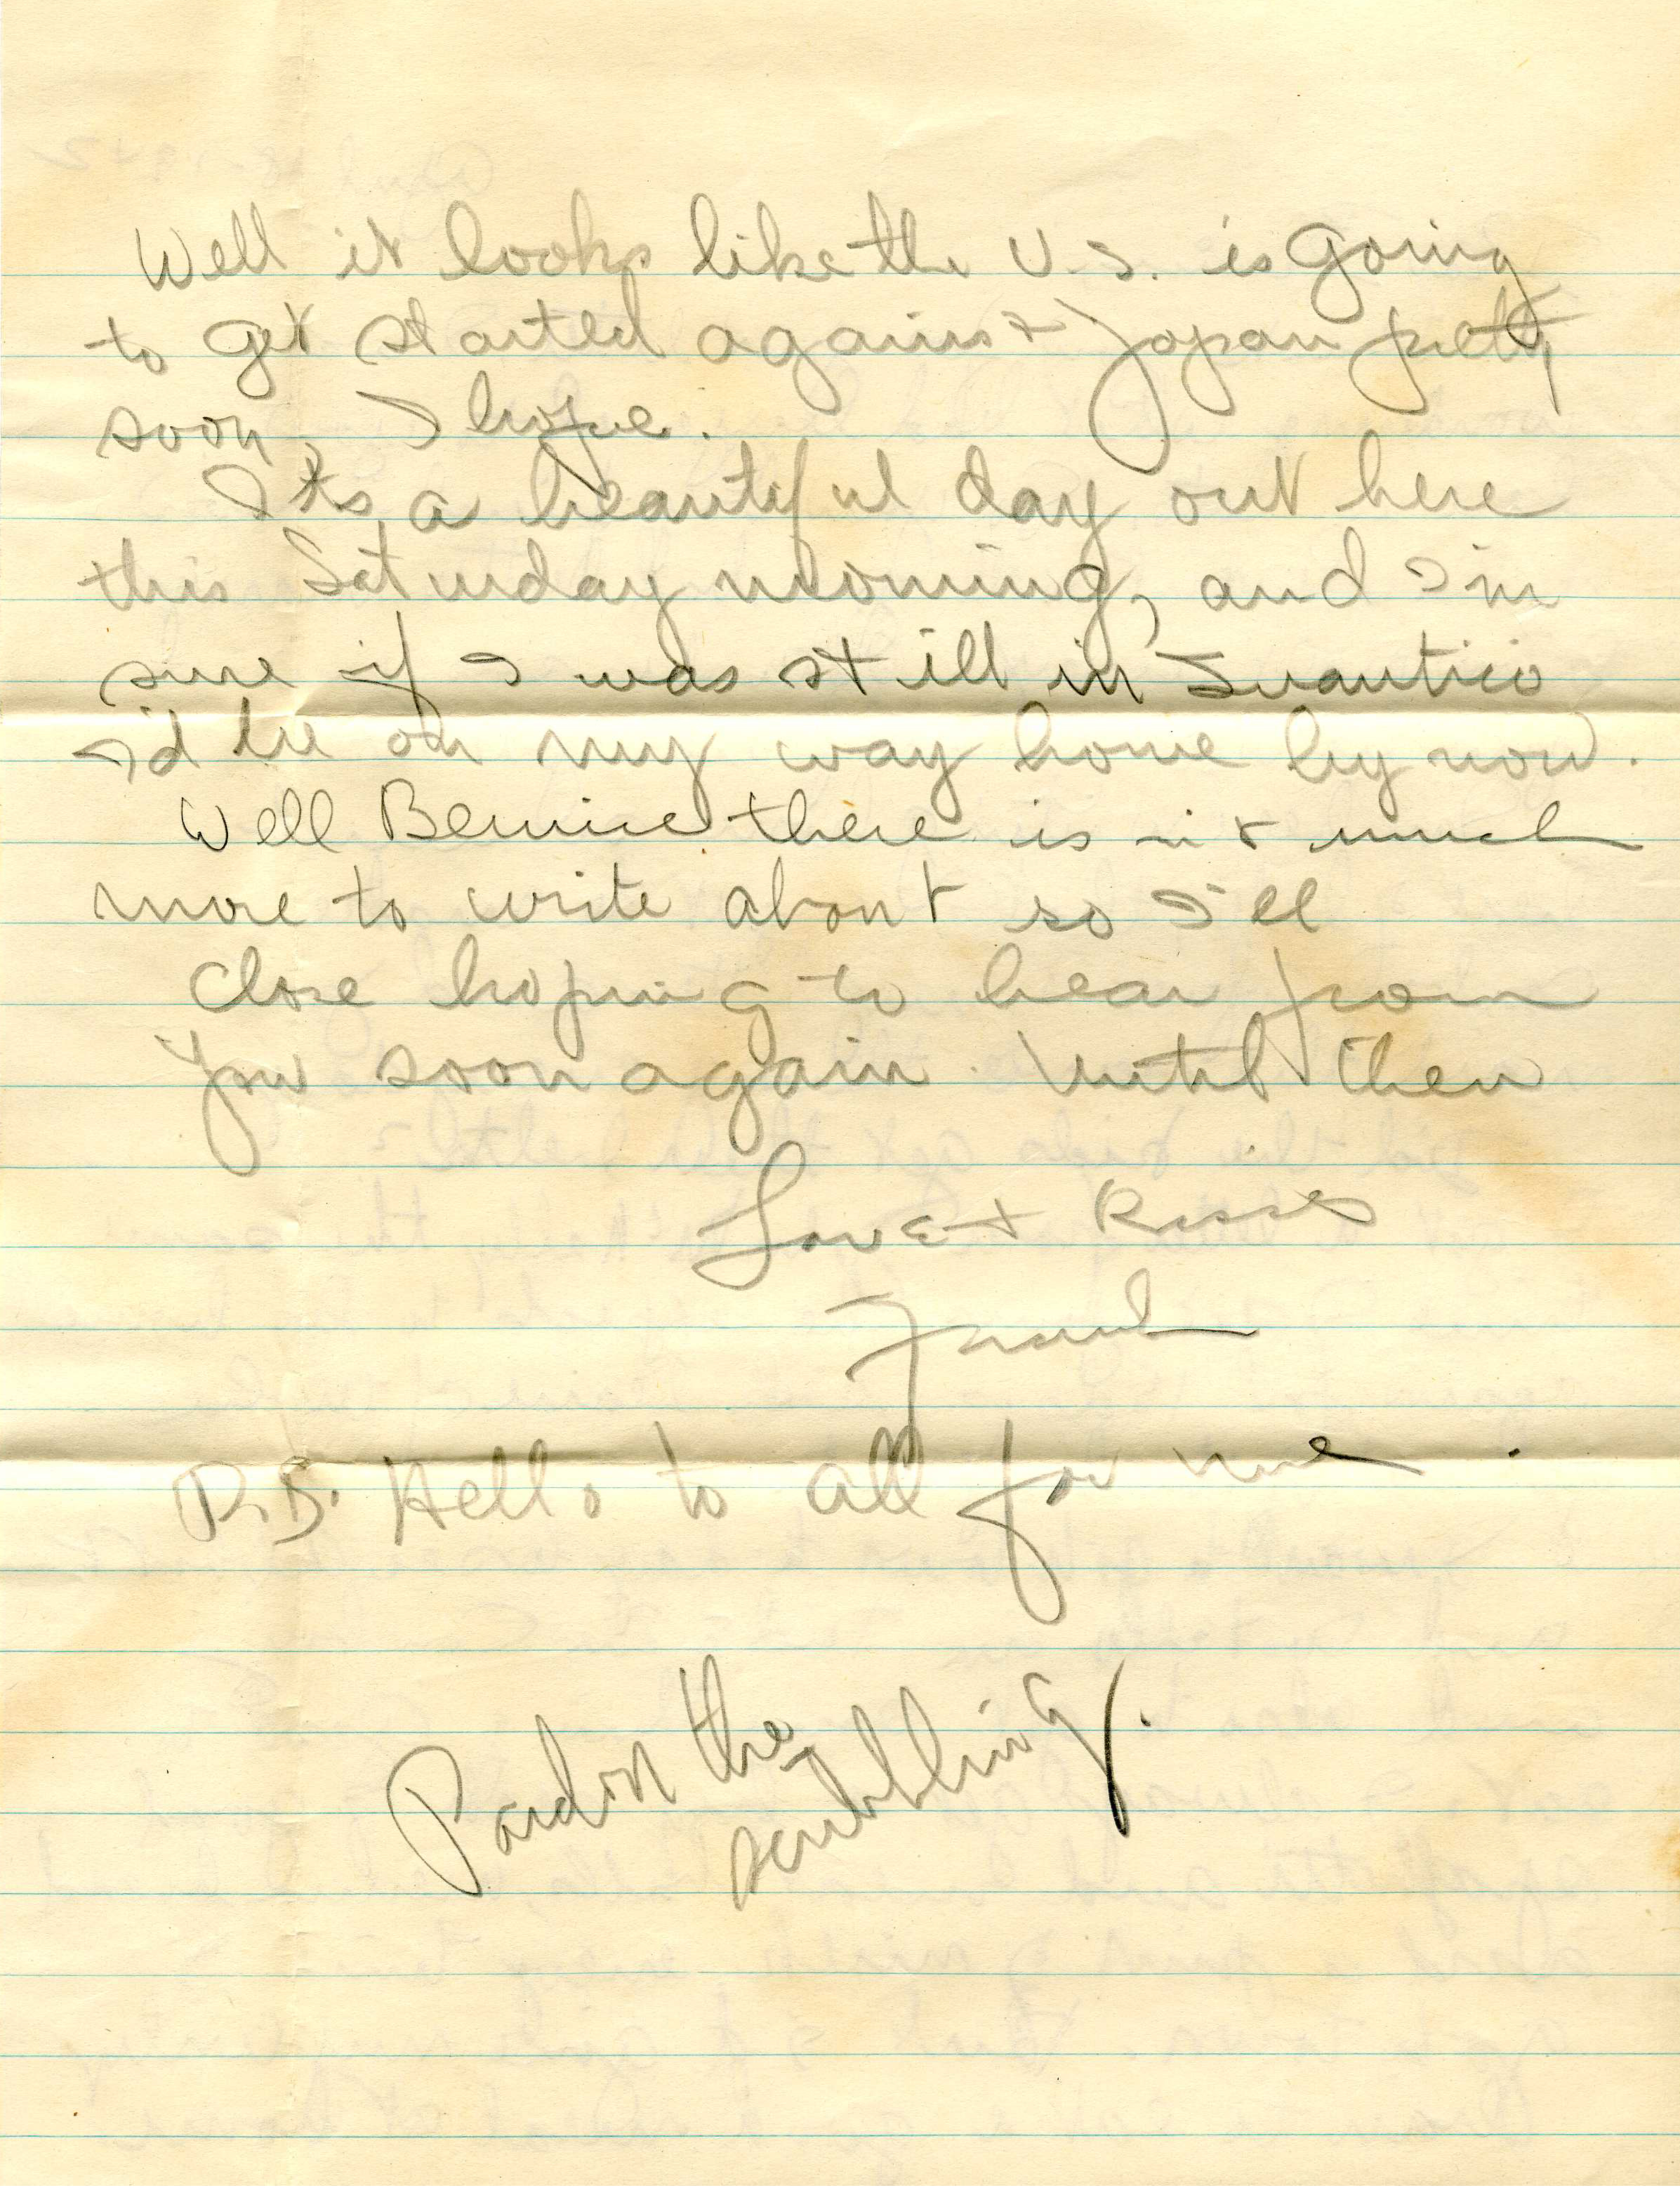 Well it looks like the U.S. is going
to get started against Japan pretty
soon, I hope.
Its a beautiful day out here
this Saturday morning, and I'm
sure if I was still in Quantico
I'd be on my way home by now.
Well Bernice there isn't much
more to write about so I'll
Close hoping to hear from
You soon again. Until then
Love + Kisses
Frank
P.S. Hello to all for me.
Pardon the
scribbling.